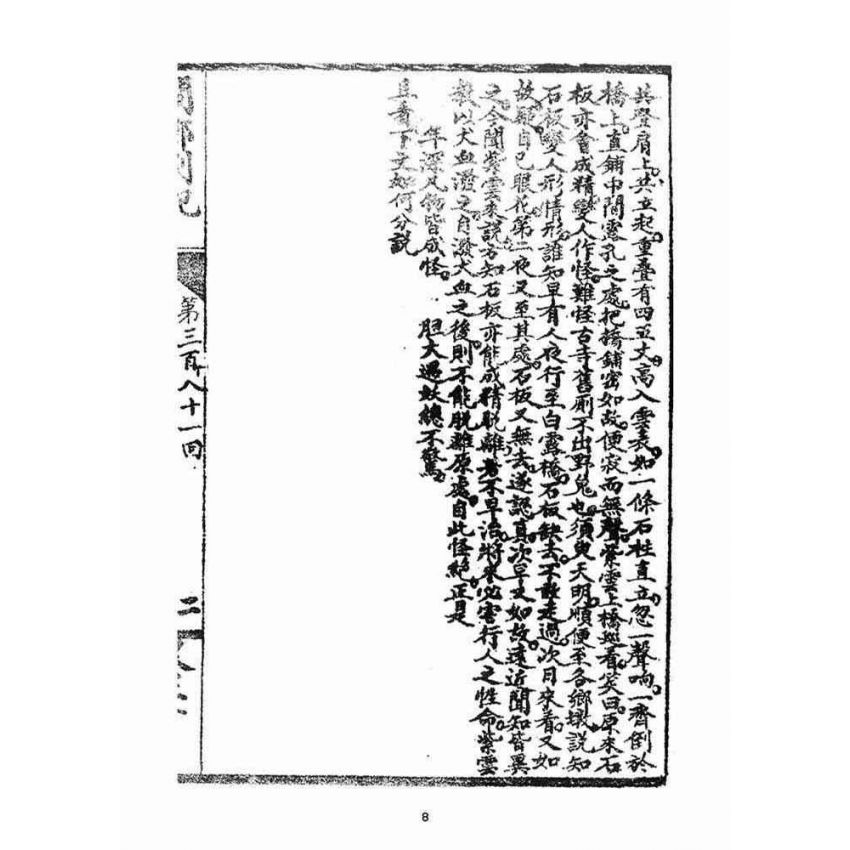 其登肩上共立起重疊有四五丈高入雲表如一條石柱直立忽一聲响一齊倒於
橋上直鋪中間露孔之處把橋鋪密如故便寂而無聲紫雲上橋巡看笑曰原來石
板亦會成精變人作怪難怪古寺舊廟不出野鬼也須臾天明順便至各鄉墩說知
石板變人形情形誰知早有人夜行至白露橋石板缺去不敢走過次日來看又如
故疑自己眼花第二夜又至其處石板又無去遂認真次早又如故遠近聞知皆異
之今聞紫雲來說方知石板亦能成精脫離若不早治將來必害行人之性命紫雲
教以犬血潑之自潑犬血之後則不能脫離原處自此怪絕正是
年深凡物皆成怪 胆大遇妖總不驚
且看下文如何分說
第三百八十一回
二
8